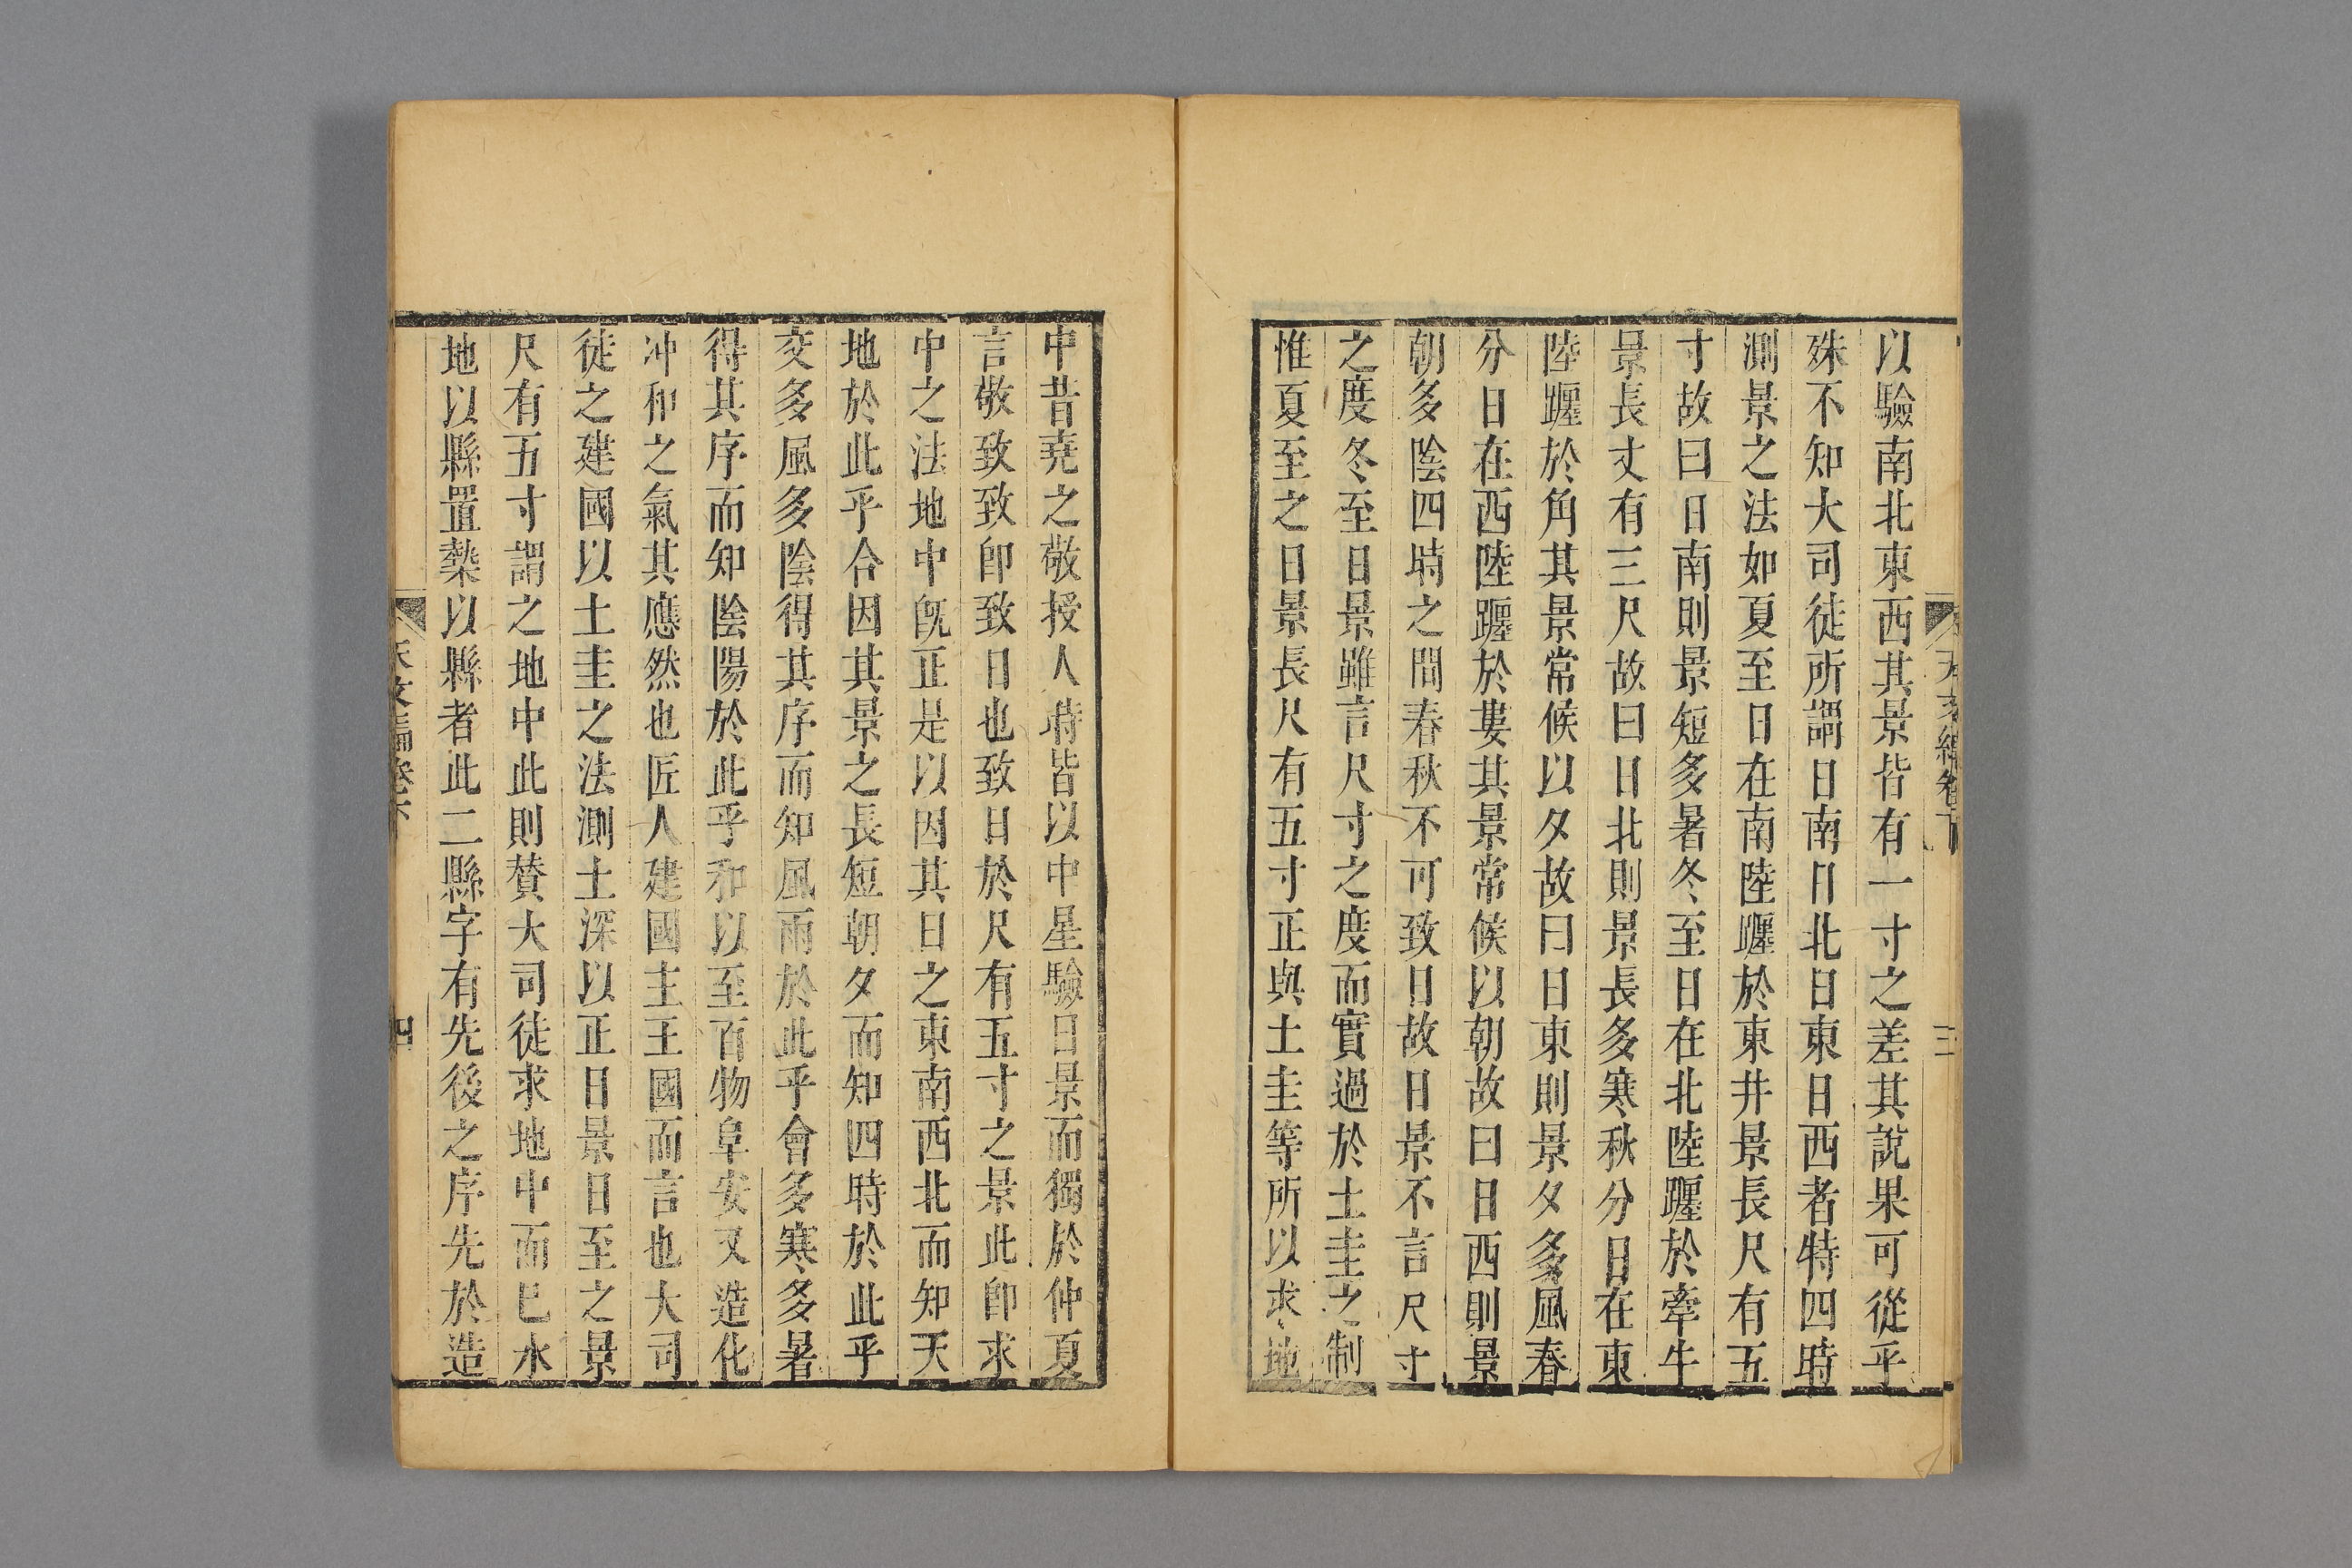 以驗南北東西其景皆有一寸之差其說果可從乎
殊不知大司徒所謂日南日北日東日西者特四時
測景之法如夏至日在南陸躔於東井景長尺有五
寸故曰日南則景短多暑冬至日在北陸躔於牽牛
景長丈有三尺故曰日北則景長多寒秋分日在東
陸躔於角其景常候以夕故曰日東則景夕多風春
分日在西陸躔於婁其景常候以朝故曰日西則景
朝多陰四時之間春秋不可致日故日景不言尺寸
之度冬至日景雖言尺寸之度而實過於土圭之制
惟夏至之日景長尺有五寸正與土圭等所以求地
中昔堯之敬授人時皆以中星驗日景而獨於仲夏
言敬致致卽致日也致日於尺有五寸之景此卽求
中之法地中旣正是以因其日之東南西北而知天
地於此乎合因其景之長短朝夕而知四時於此乎
交多風多陰得其序而知風雨於此乎會多寒多暑
得其序而知陰陽於此乎和以至百物阜安又造化
冲和之氣其應然也匠人建國主王國而言也大司
徒之建國以土圭之法測土深以正日景日至之景
尺有五寸謂之地中此則贊大司徒求地中而已水
地以縣置槷以縣者此二縣字有先後之序先於造
天文編卷下
三
四